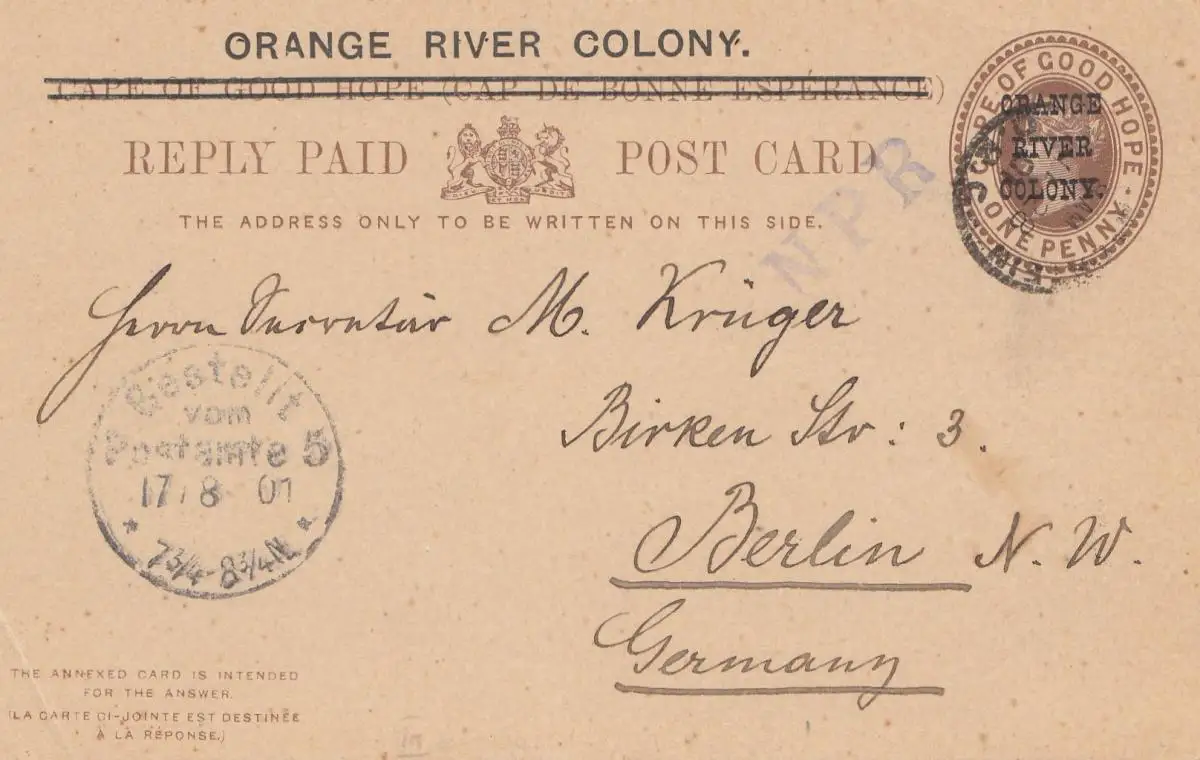 ORANGE RIVER COLONY.
CAPE OF GOOD HOPE (CAP DE BONNE ESPÉRANCE)
REPLY PAID POST CARD
THE ADDRESS ONLY TO BE WRITTEN ON THIS SIDE.
CAPE OF GOOD HOPE
ONE PENNY
ORANGE
RIVER
COLONY.
NPR
Herrn Secretär M. Krüger
Birken Str: 3.
Berlin N. W.
Germany
Bestellt
vom
Postamte 5
17/8 01
7¾-8¾N
THE ANNEXED CARD IS INTENDED
FOR THE ANSWER.
(LA CARTE CI-JOINTE EST DESTINÉE
À LA RÉPONSE.)